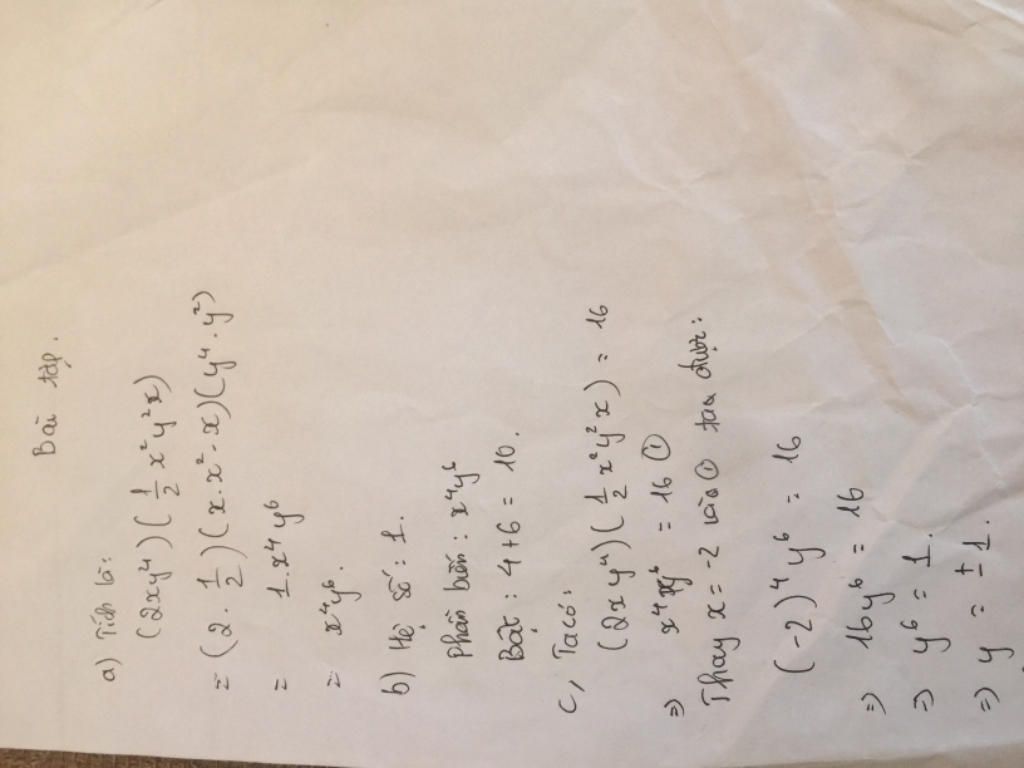 Bài tập.
a) Tích là:
(2xy⁴)(1/2 x²y²x)
= (2 · 1/2)(x.x²·x)(y⁴.y²)
= 1.x⁴y⁶
= x⁴y⁶.
b) Hệ số: 1.
Phần biến: x⁴y⁶
Bật: 4+6 = 10.
c, Ta có:
(2xy⁴)(1/2 x²y²x) = 16
=> x⁴y⁶ = 16 ①
Thay x = -2 vào ① taa được:
(-2)⁴y⁶ = 16
=> 16y⁶ = 16
=> y⁶ = 1.
=> y = ±1.